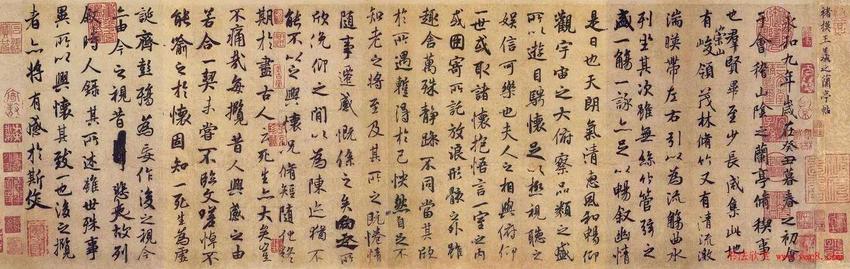 褚模王羲之蘭亭帖
永和九年歲在癸丑暮春之初會
于會稽山陰之蘭亭脩稧事
也羣賢畢至少長咸集此地
有崇山峻領茂林脩竹又有清流激
湍暎帶左右引以為流觴曲水
列坐其次雖無絲竹管弦之
盛一觴一詠亦足以暢敘幽情
是日也天朗氣清惠風和暢仰
觀宇宙之大俯察品類之盛
所以遊目騁懷足以極視聽之
娛信可樂也夫人之相與俯仰
一世或取諸懷抱悟言一室之內
或因寄所託放浪形骸之外雖
趣舍萬殊靜躁不同當其欣
於所遇暫得於己怏然自足不
知老之將至及其所之既惓情
隨事遷感慨係之矣向之所
欣俛仰之閒以為陳迹猶不
能不以之興懷況脩短隨化終
期於盡古人云死生亦大矣豈
不痛哉每攬昔人興感之由
若合一契未嘗不臨文嗟悼不
能喻之於懷固知一死生為虛
誕齊彭殤為妄作後之視今
亦由今之視昔悲夫故列
敘時人錄其所述雖世殊事
異所以興懷其致一也後之攬
者亦將有感於斯文
书法欣赏 www.yac8.com